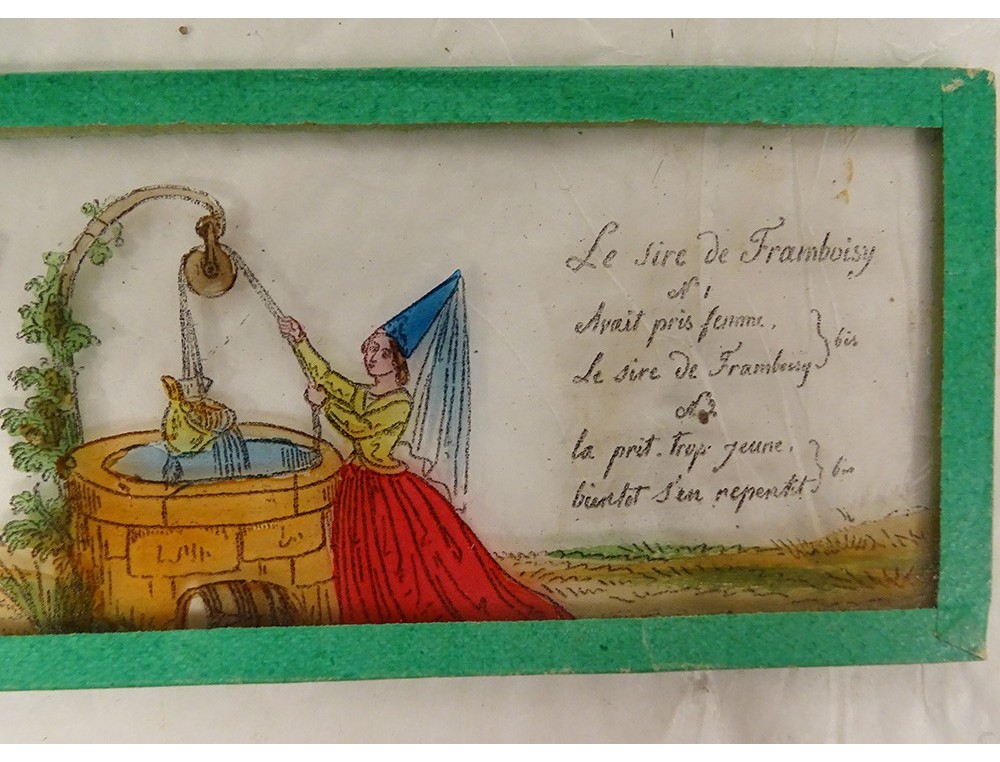 Le sire de Framboisy
N° 1
Avait pris femme,
Le sire de Framboisy } bis
N° 2
la prit. Trop jeune,
bientot s'en repentit } bis